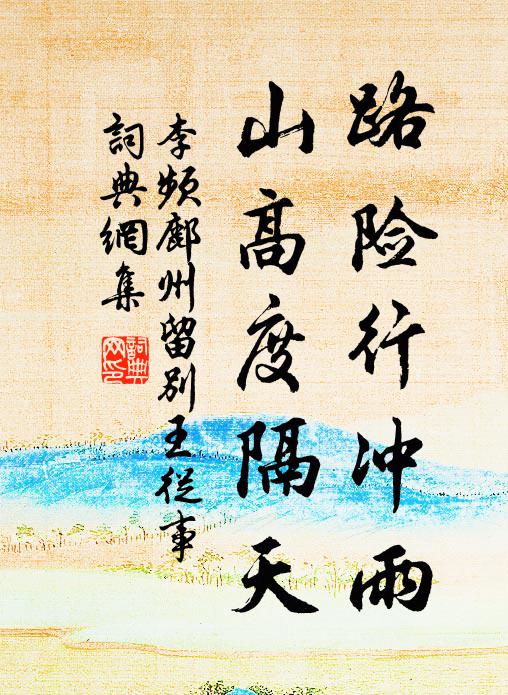 路险行冲雨
山高度隔天
李频鄜州留别王從事
詞典網集
詞典網印